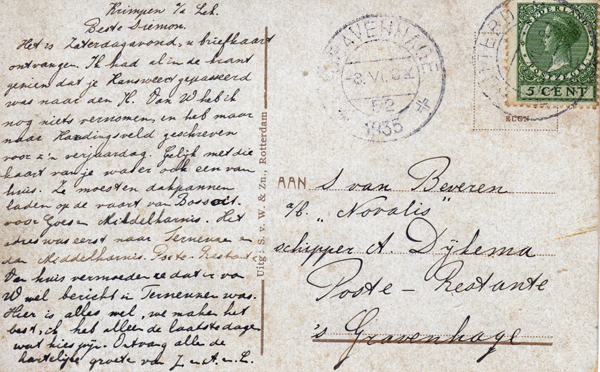 Krimpen a/d Lek.
Beste Siemon.
Het is Zaterdagavond, u briefkaart
ontvangen. Ik had al in de krant
gezien dat je Hansweert gepasseerd
was naar den H. Van W heb ik
nog niets vernomen, en heb maar
naar geschreven
voor z'n verjaardag. Gelijk met die
kaart van je was er ook een van
huis. Ze moesten dakpannen
laden op de vaart van
voor Goes en Middelharnis. Het
adres was eerst naar Terneuzen en
dan Middelharnis Poste-Restante
Van huis vermoeden ze dat er van
W wel bericht in Terneuzen was.
Hier is alles wel, we maken het
best, ik heb alleen de laatste dagen
wat kiespijn. Ontvang allen de
hartelijke groete van J. en A. en L.
Uitg. S. v. W. & Zn., Rotterdam
'S GRAVENHAGE
1935
NEDERLAND
5 CENT
AAN
S van Beveren
a/b. „Novalis"
schipper A Dijkema
Poste-Restante
's Gravenhage